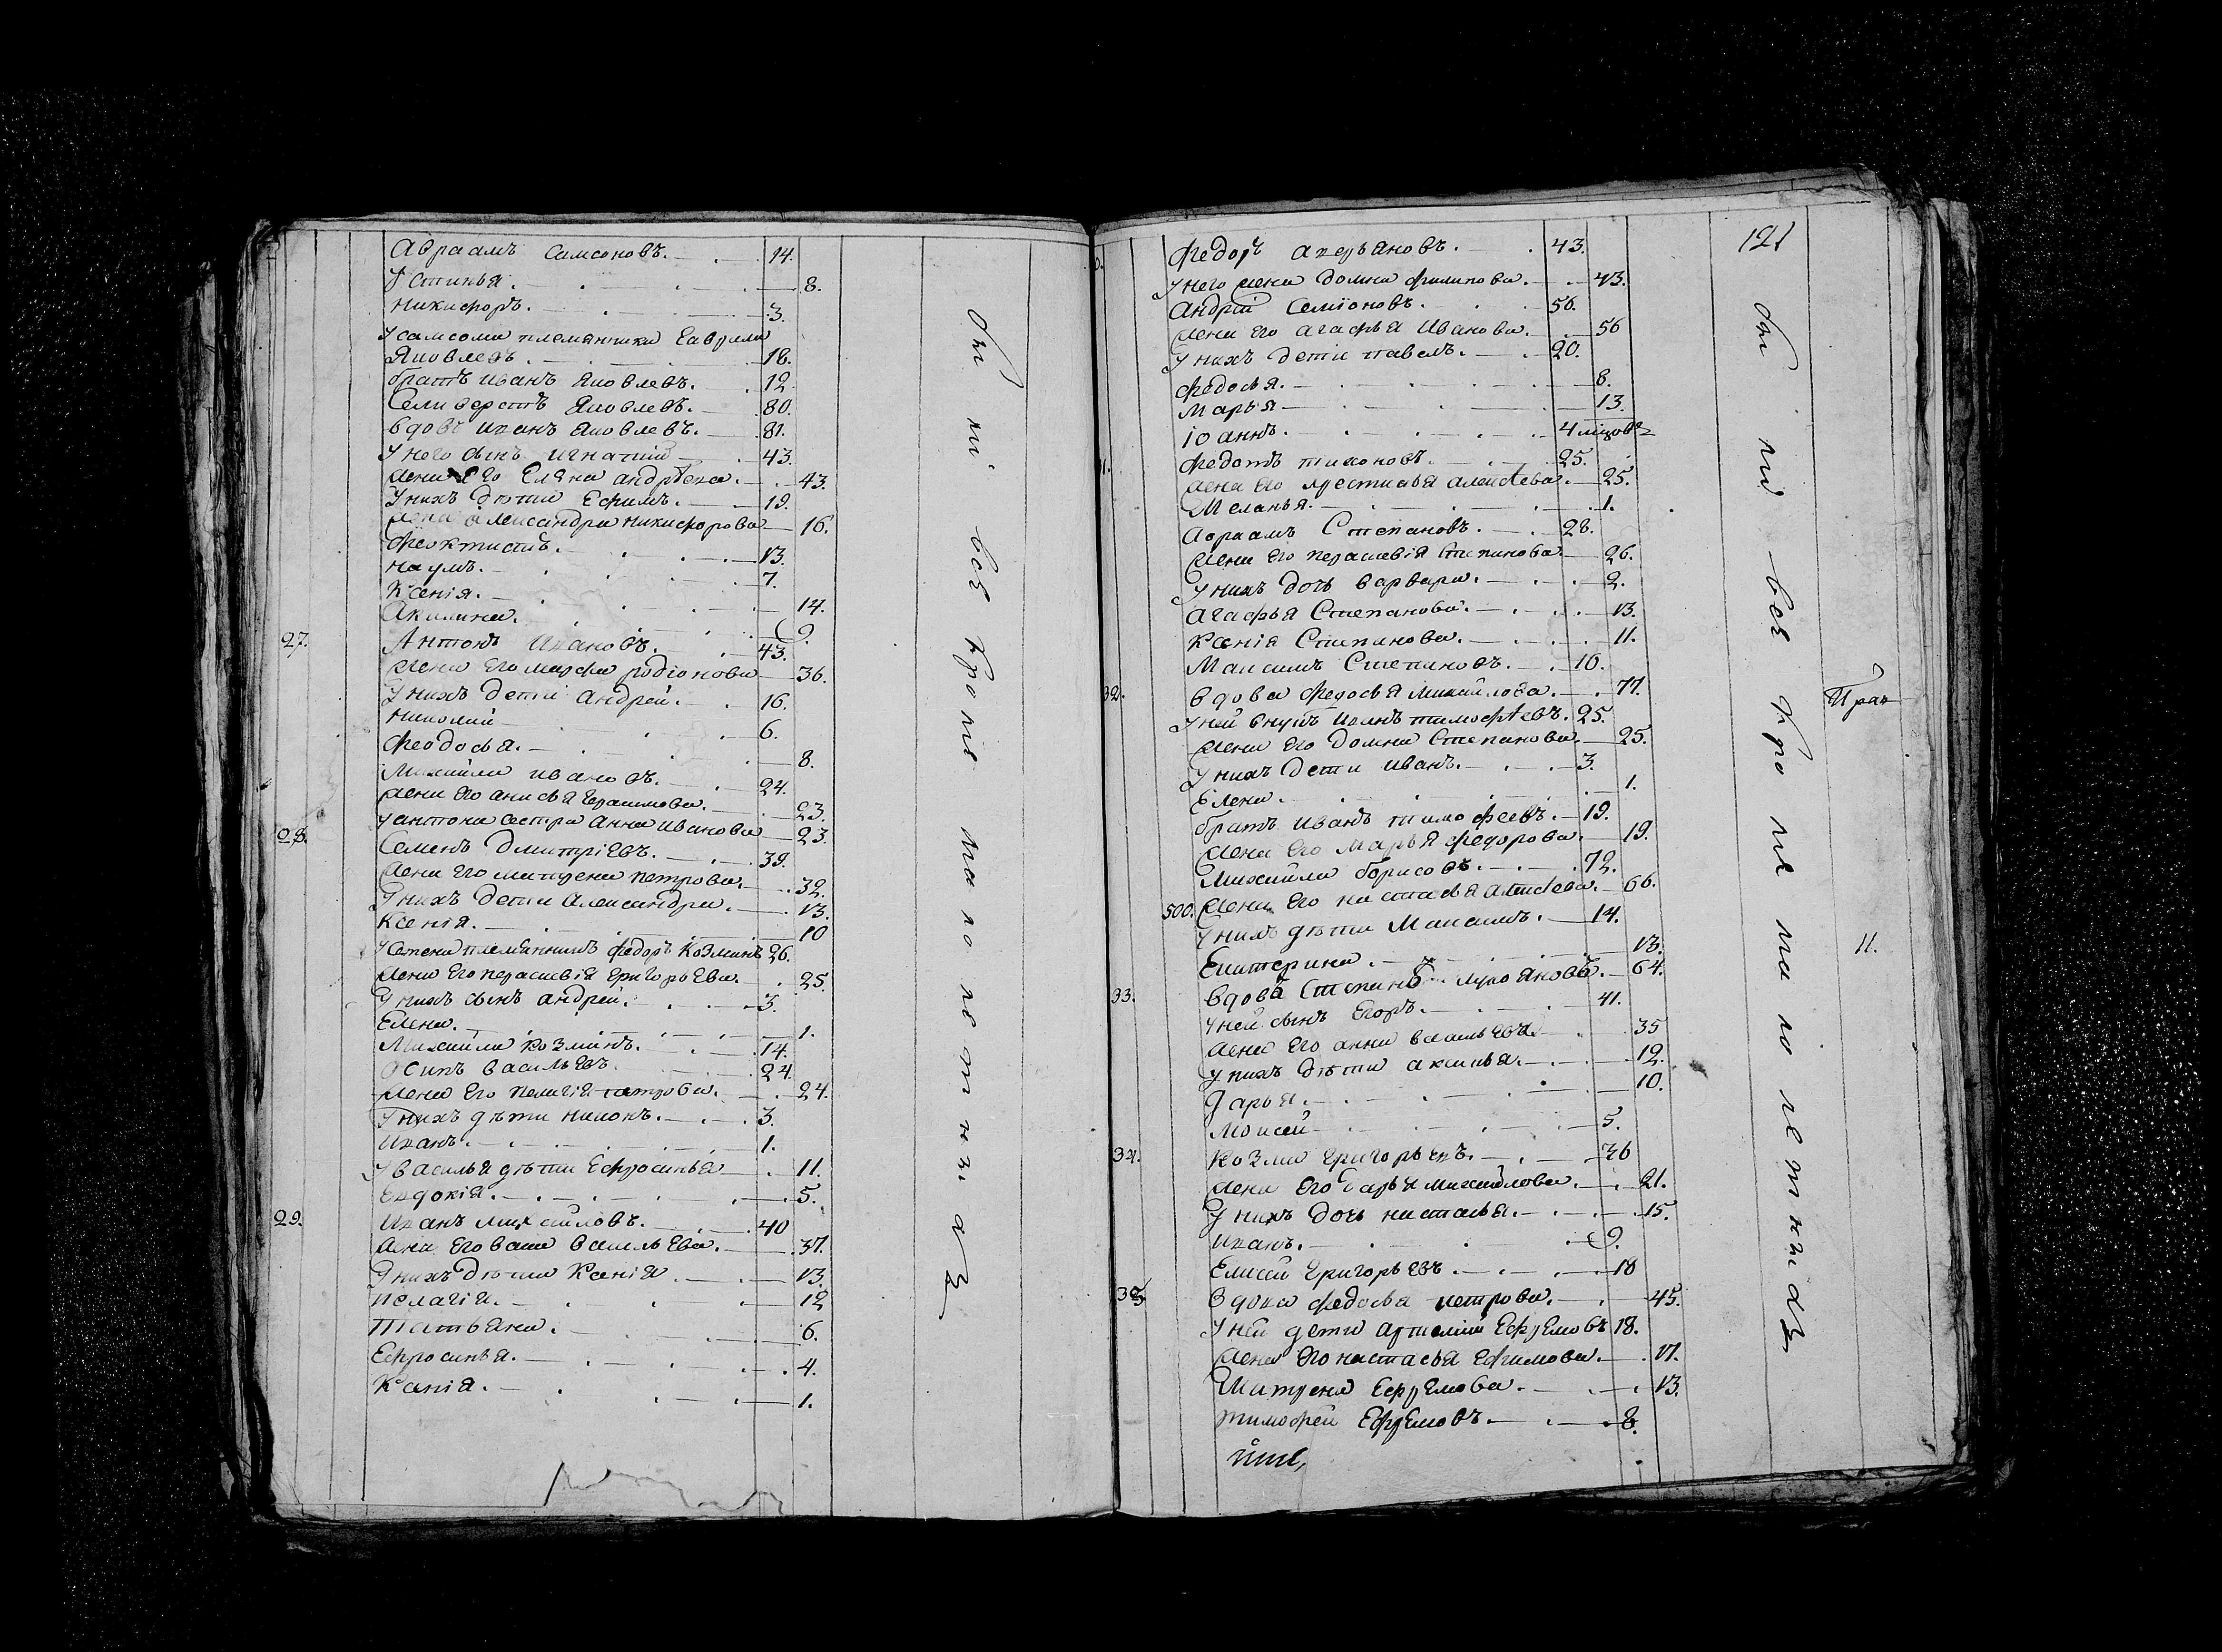 Авраамъ Самсоновъ. 14.
Устинья. 8.
Никифоръ. 3.
У самсома племянники Гаврила
Яковлевъ. 18.
братъ иванъ Яковлевъ. 12.
Селиверстъ Яковлевъ. 80.
вдовъ иванъ Яковлевъ. 81.
У него сынъ игнатий 43.
жена его Елена андрѣева. 43.
У нихъ дѣти Ефимъ. 19.
жена александра никифорова 16.
Феоктистъ. 13.
наумъ. 7.
Ксенія. 14.
Акилина. 9.
27. Антонъ ивановъ. 43.
жена его марфа родіонова 36.
У нихъ дети андрей. 16.
Николай 6.
Феодосья. 8.
Михайла ивановъ. 24.
жена его анисья герасимова. 23.
У антона сестра анна иванова 23.
28. Семенъ Дмитріевъ. 39.
жена его матрена петрова. 32.
У нихъ дети Александра. 13.
Ксенія. 10
У семена племянникъ федоръ Козминъ 26.
жена его параскевія григорьева. 25.
У нихъ сынъ андрей. 3.
Елена. 1.
Михайла козминъ. 14.
Осипъ васильевъ. 24.
жена его пелагія петрова. 24.
У нихъ дѣти никонъ. 3.
иванъ. 1.
У василья дѣти Ефросинья 11.
Евдокія. 5.
29. иванъ михайловъ. 40
жена его васильева. 37.
У нихъ дѣти Ксенія 13.
пелагія. 12
татьяна. 6.
Ефросинья. 4.
Ксенія. 1.
бы ли всѣ кроме малолетнихъ
121
Федоръ аверьяновъ. 43.
У него жена домна филипова. 43.
Андрей Семіоновъ. 56.
жена его агафья иванова. 56
У нихъ дети павелъ. 20.
Федосья. 8.
Марья 13.
іоаннъ. 4
Федотъ тихоновъ. 25.
жена его алексѣева. 25.
Меланья. 1.
Авраамъ Степановъ. 28.
жена его параскевія Степанова 26.
У нихъ дочь варвара. 2.
агафья Степанова. 13.
Ксенія Степанова. 11.
Максимъ Степановъ. 16.
32. вдова федосья михайлова. 77.
У ней внукъ иванъ тимофѣевъ. 25.
жена его домна Степанова. 25.
У нихъ дети иванъ. 3.
Елена. 1.
братъ иванъ тимофеевъ. 19.
жена его марья федорова. 19.
Михайла борисовъ. 72.
500. жена его настасья алексѣева. 66.
У нихъ дѣти Максимъ. 14.
Екатерина. 13.
33. вдова лукояновъ. 64.
У ней сынъ Егоръ. 41.
жена его анна васильева. 35
У нихъ дѣти аксинья. 12.
Дарья. 10.
Моисей 5.
34. Козма григорьевъ. 36
жена его дарья михайлова. 21.
У нихъ дочь настасья. 15.
иванъ. 9.
Елисей григорьевъ. 18
35. вдова федосья петрова. 45.
У ней дети артемій Ефремовъ 18.
жена его настасья Ефимова. 17.
Матрена Ефремова. 13.
тимофей Ефремовъ 8.
бы ли всѣ кроме малолетнихъ
11.